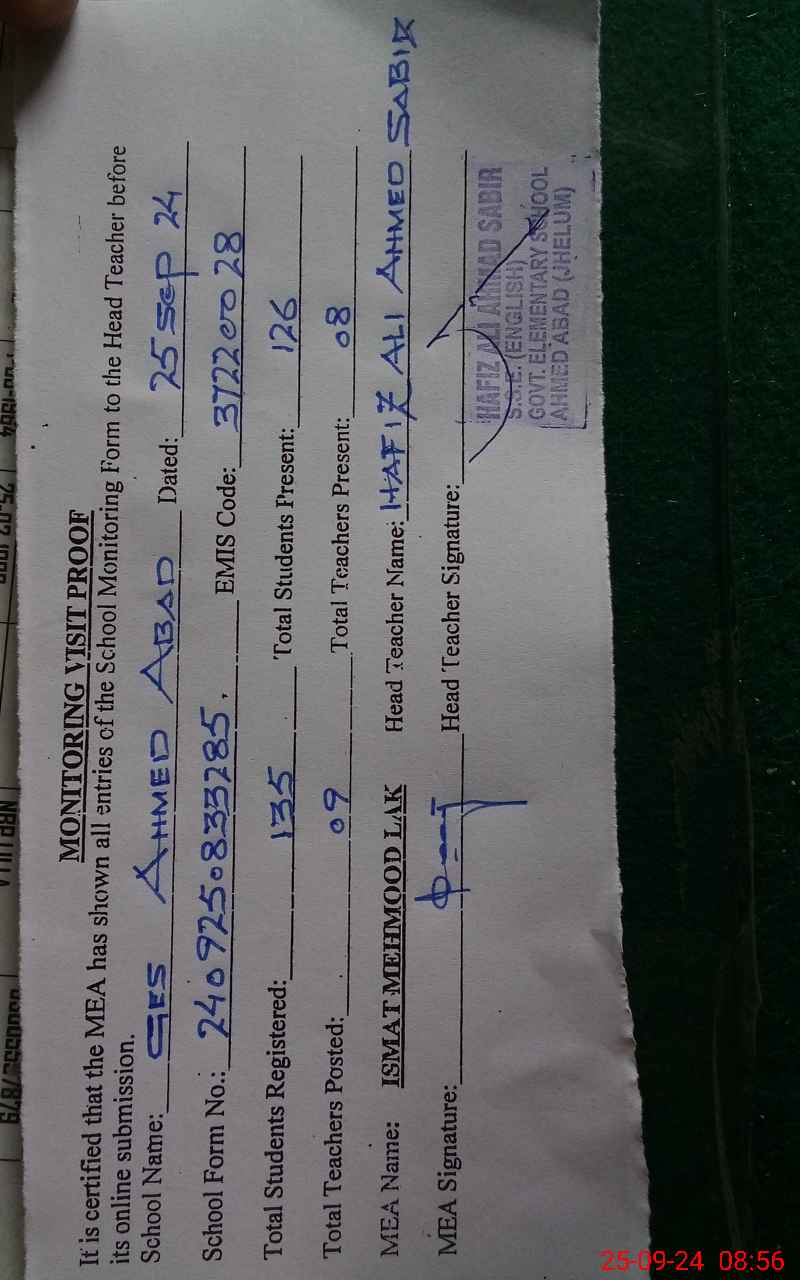 MONITORING VISIT PROOF
It is certified that the MEA has shown all entries of the School Monitoring Form to the Head Teacher before
its online submission.
School Name: GES AHMED ABAD Dated: 25 Sep 24
School Form No.: 2409250833285. EMIS Code: 37220028
Total Students Registered: 135 Total Students Present: 126
Total Teachers Posted: 09 Total Teachers Present: 08
MEA Name: ISMAT MEHMOOD LAK Head Teacher Name: HAFIZ ALI AHMED SABIR
MEA Signature: Head Teacher Signature:
HAFIZ ALI AHMAD SABIR
S.S.E. (ENGLISH)
GOVT. ELEMENTARY SCHOOL
AHMED ABAD (JHELUM)
25-09-24 08:56